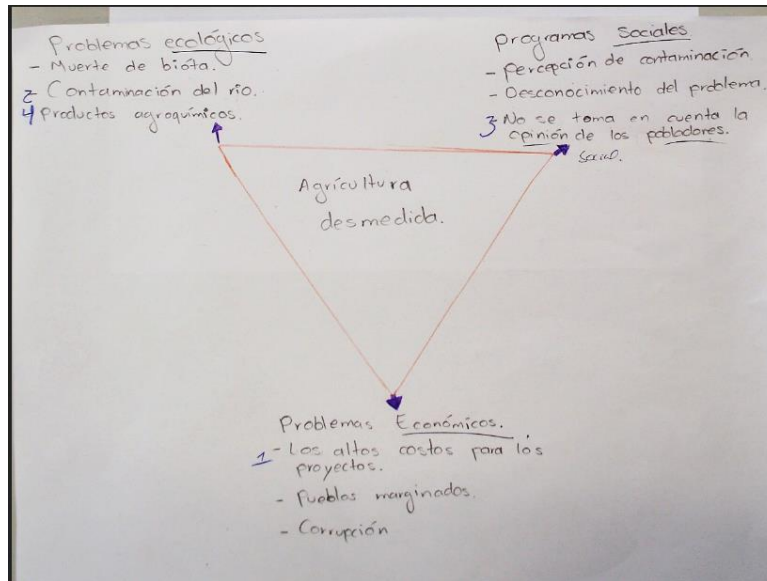 Problemas ecológicos
- Muerte de biota.
2 - Contaminación del rio.
4 Productos agroquímicos.
programas sociales
- percepción de contaminación
- Desconocimiento del problema.
3 - No se toma en cuenta la
opinión de los pobladores.
Social.
Agrícultura
desmedida.
Problemas Económicos.
1 - Los altos costos para los
proyectos.
- Pueblos marginados.
- Corrupción